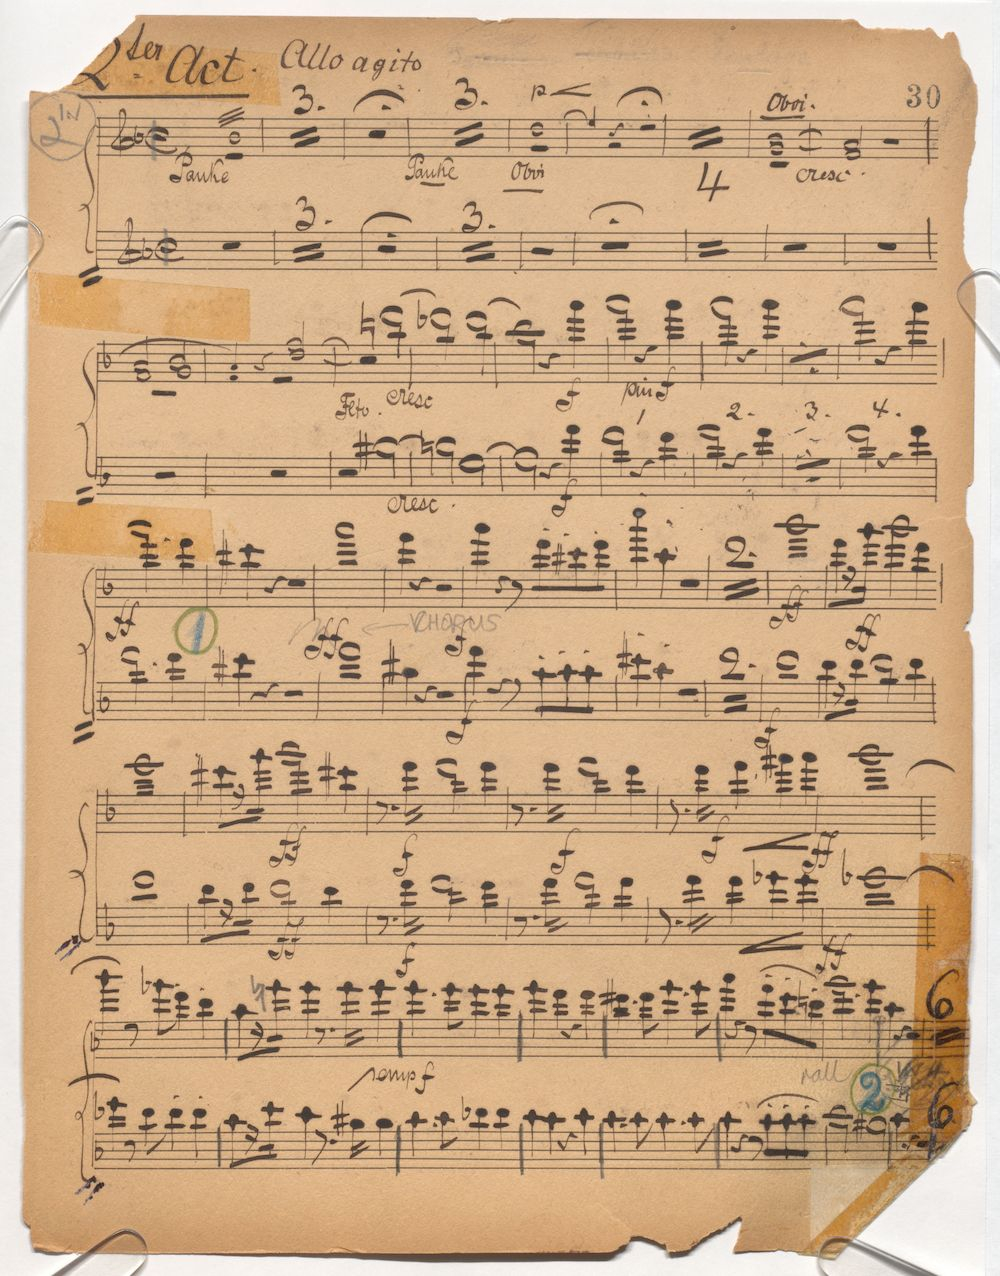 2ter Act. Allo agito
30
3. 3. p Oboi.
Pauke Pauke Oboi 4 cresc.
3. 3.
Fltο. cresc f piu f
1 2. 3. 4.
cresc. f
2.
ff 1 ff CHORUS f ff ff
2.
f f
ff f f f ff
ff f ff
6
semp f rall 2
6